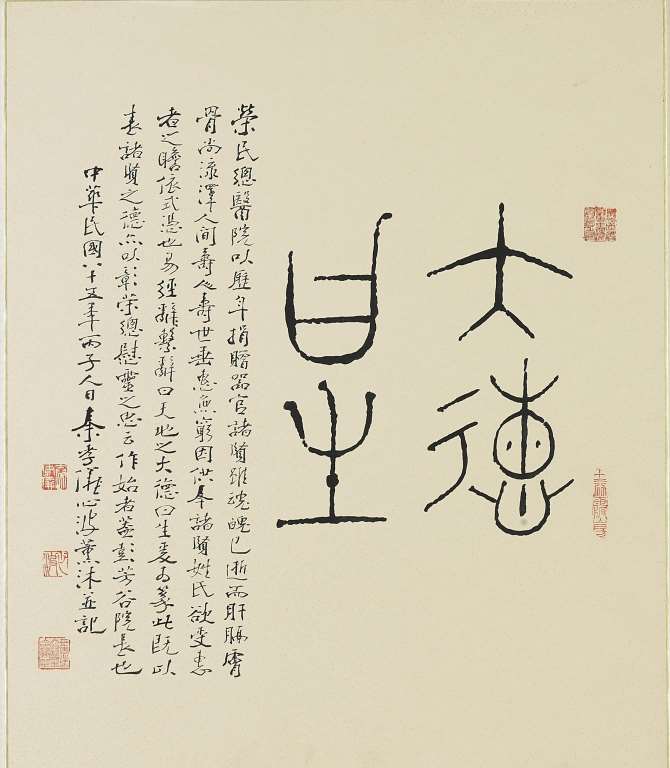 大德
曰生
榮民總醫院以歷年捐贈器官諸賢雖魂魄已逝而肝腸膚
骨尚流澤人間壽人壽世垂惠無窮因供奉諸賢姓氏欲受惠
者之瞻依式憑也易經辭繫辭曰天地之大德曰生爰為篆此既以
表諸賢之德亦以彰榮總慰靈之忠云作始者蓋彭芳谷院長也
中華民國八十五年丙子人日秦孝儀心波薰沐並記